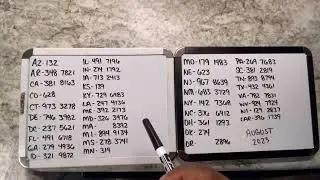 AZ-132
AR-348 7821
CA-381 8163
CO-628
CT-973 3278
DE-746 3982
DC-237 5621
FL-491 6718
GA-279 4936
ID-321 9872
IL-491 7196
IN-274 1792
IA-713 2413
KS-139
KY-729 6983
LA-247 4136
ME-392 2173
MD-326 3976
MA- 8392
MI-894 9134
MS-278 3741
MN-314
MO-179 1483
NE-623
NJ-967 8639
NM-438 6983
NY-142 7368
NC-376 6412
OH-361 1293
OK-274
OR- 2896
PA-269 7683
SC-381 2814
TN-893 8794
TX-432 4361
VA-782 7831
WV-924 7924
WI-129 2837
CAR-396 1739
AUGUST
2023